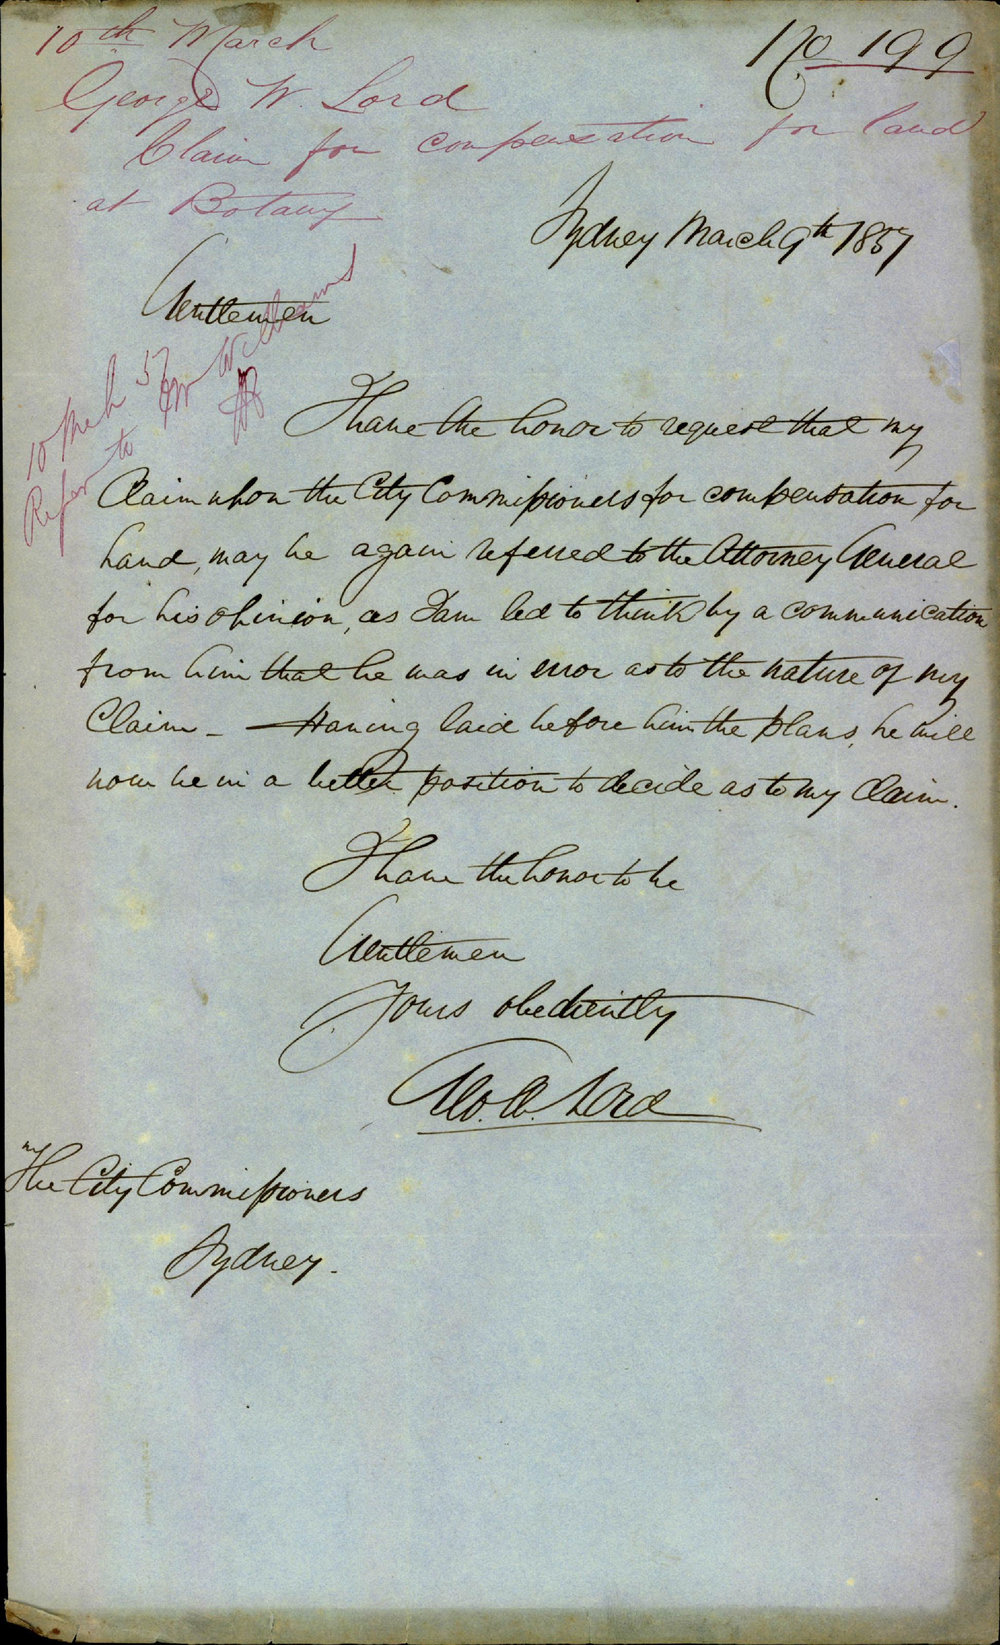 No 199
10th March
George W. Lord
Claim for compensation for land
at Botany
Sydney March 9th 1857
Gentlemen
10 March 57
Refer to Mr Williams
I have the honor to request that my
Claim upon the City Commissioners for compensation for
Land, may be again referred to the Attorney General
for his opinion, as I am led to think by a communication
from him that he was in error as to the nature of my
Claim - Having laid before him the plans, he will
now be in a better position to decide as to my Claim.
I have the honor to be
Gentlemen
Yours obediently
Geo. W. Lord
The City Commissioners
Sydney.